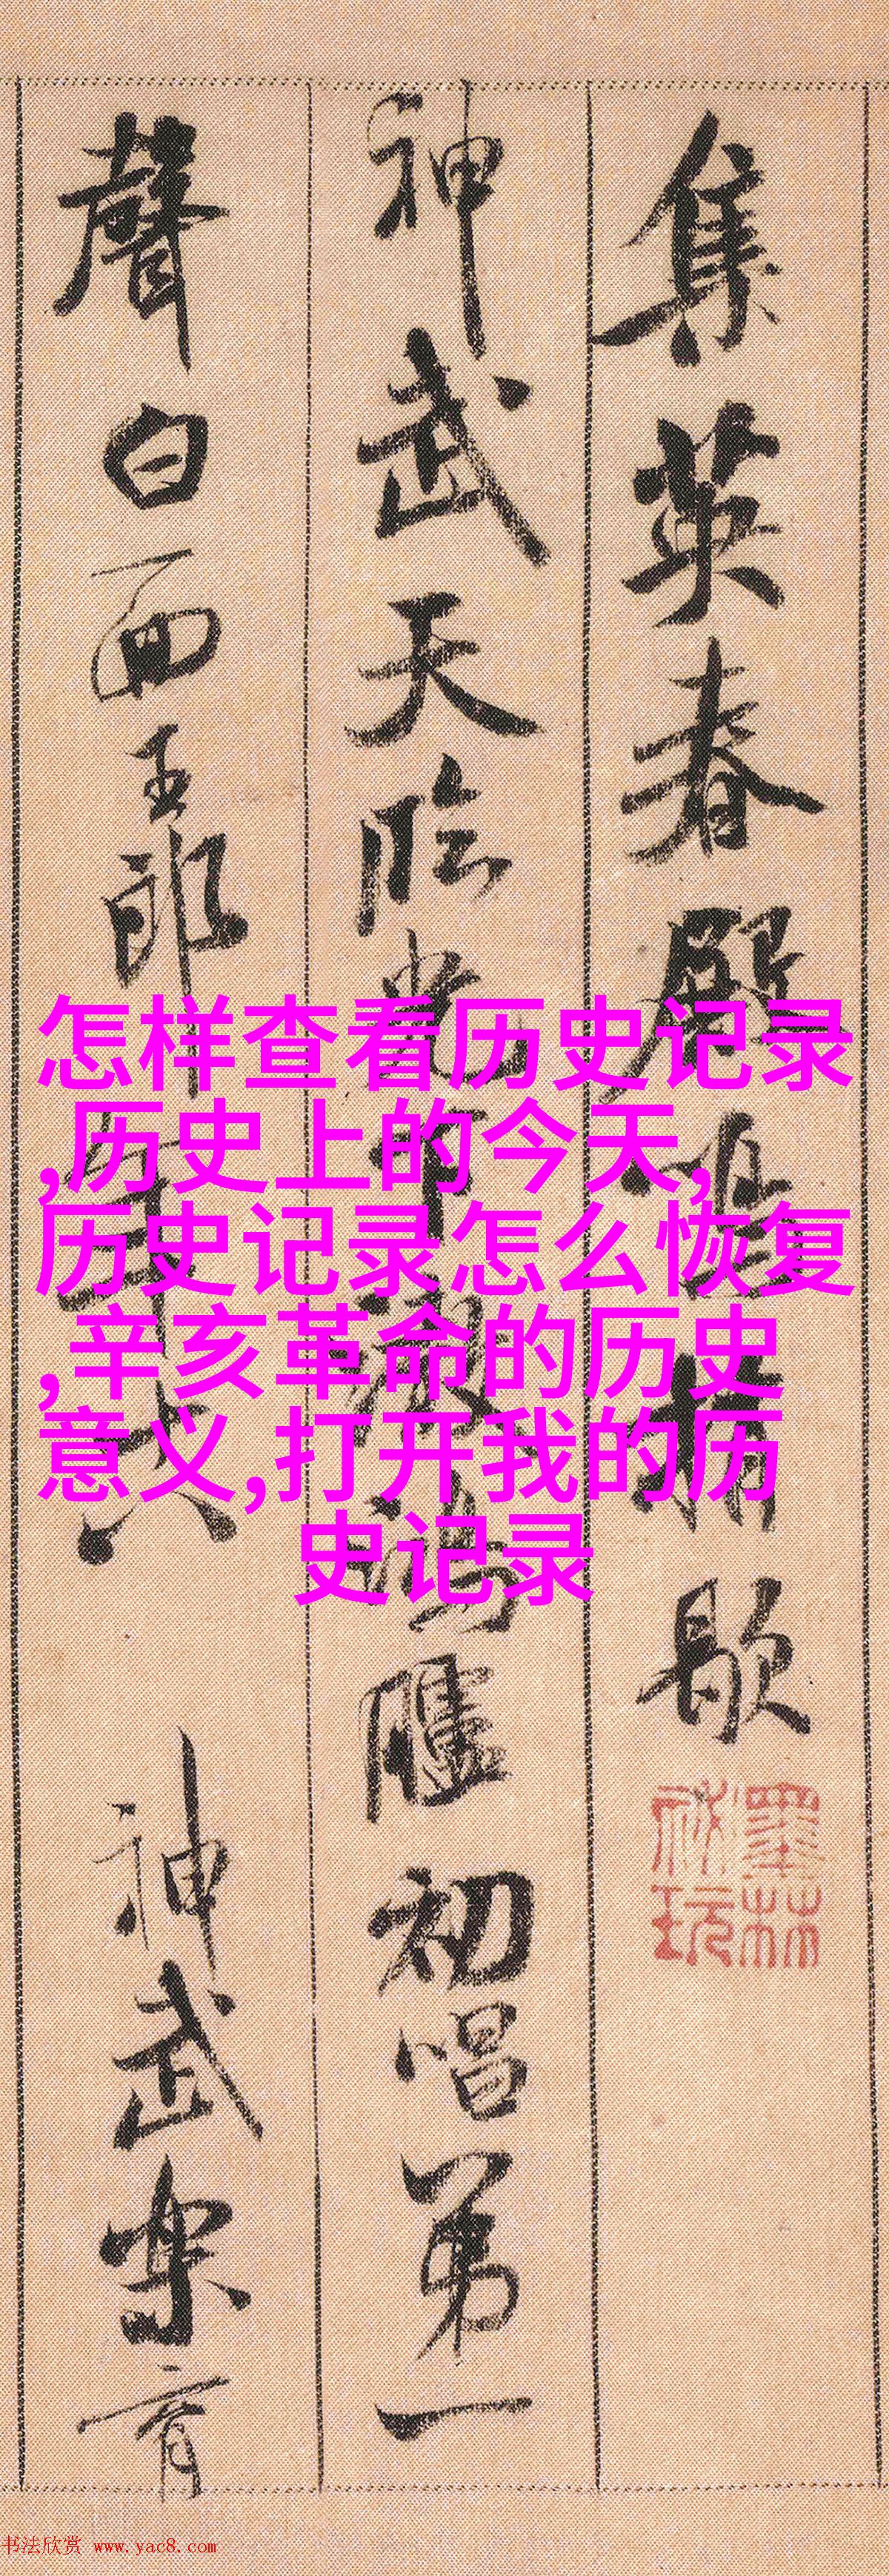 集英春殿鳴捎歇
神武天臨光下澈鴻臚初唱第一
聲白面王郎年十八神武樂育
墨林祕玩
怎样查看历史记录
,历史上的今天,
历史记录怎么恢复
,辛亥革命的历史
意义,打开我的历
史记录
书法欣赏 www.yac8.com